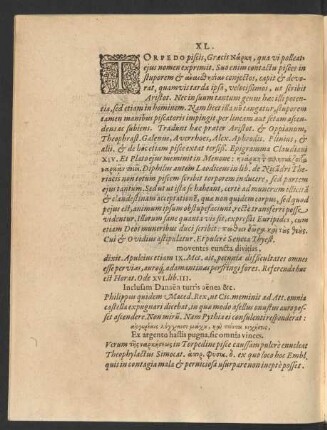 XL.
TORPEDO piscis, Græcis Νάρκη, qua vi polleat
ejus nomen exprimit. Suo enim contactu pisces in
stuporem & conjectos, capit & devo-
rat, quamvis tarda ipsa, velocissimos, ut scribit
Aristot. Nec in suum tantum genus hæc illi poten-
tia, sed etiam in hominem. Nam licet illa non tangatur, stuporem
tamen manibus piscatoris impingit, per lineam aut setam ascen-
dens ac subiens. Tradunt hæc præter Aristot. & Oppianum,
Theophrast. Galenus, Averrhoes, Alex. Aphrodis. Plinius, &
alii, & de hac etiam pisce extat torsii. Epigramma Claudiani
XIV. Et Plato ejus meminit in Menone:
Diphilus autem Laodicenus in lib. de Nicandri The-
riacis non totum piscem scribit torporem inducere, sed partem
ejus tantum. Sed ut ista se habeant, certe ad munerum illicitâ
& clandestinam acceptationē, qua non quidem corpus, sed quod
pejus est, animum ipsum obstupefacimi, rectè transferri posse
videntur. Illorum sanè quanta vis sit, expressit Euripides, cum
etiam Deos muneribus duci scribit:
Cui & Ovidius astipulatur. Et pulcrè Seneca Thyest.
moventes cuncta divitias
dixit. Apuleius etiam IX. Met. ait, pecuniæ difficultates omnes
esse pervias, auroq; adamantinas perfringi fores. Referenda huc
est Horat. Ode XVI. lib. III.
Inclusam Danaën turris aënea &c.
Philippus quidem Maced. Rex, ut Cic. meminit ad Att. omnia
castella expugnari dicebat, in quæ modo asellus onustus auro pos-
set ascendere. Non mirū. Nam Pythia ei consulenti responderat:
Ex argento hastis pugna, sic omnia vinces.
Verum τῆς in Torpedine piscis caussam pulcrè enucleat
Theophylactus Simocat. ex quo loco hoc Embl.
qui in contagia male & perniciosa usurpart non ineptè possit.